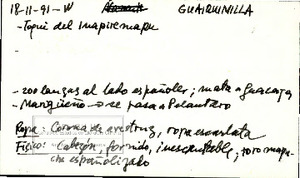 18-11-91-W GUAIQUINILLA
- Toqui del Inapiremapu
- 200 lanzas al lado españoles; mata a Guacaya
- Mangüeño → se pasa a Pelantaro
Ropa: Corona de avestruz, ropa escarlata
Físico: Cabezón, fornido, inescrutable; toro mapu-
che españolizado